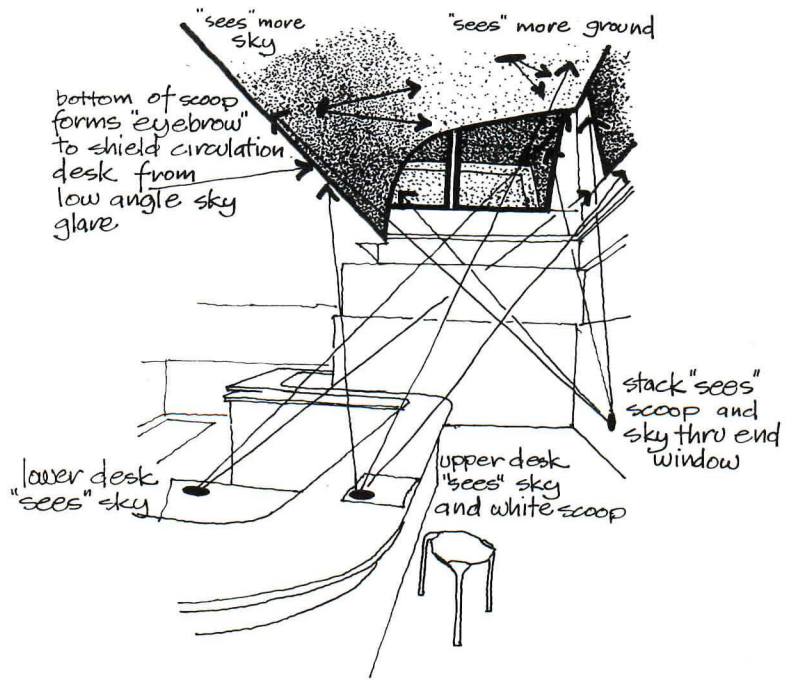 "sees" more
sky
"sees" more ground
bottom of scoop
forms "eyebrow"
to shield circulation
desk from
low angle sky
glare
stack "sees"
scoop and
sky thru end
window
lower desk
"sees" sky
upper desk
"sees" sky
and white scoop